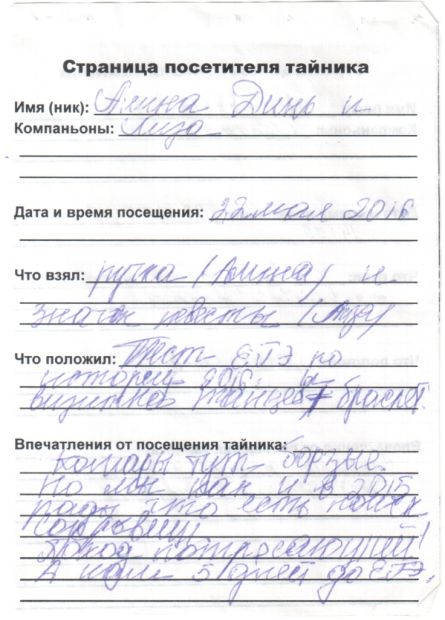 Страница посетителя тайника
Имя (ник): Алина Динь и
Компаньоны: Лиза
Дата и время посещения: 22 мая 2016
Что взял: ручка (Алина) и
значок квесты (Лиза)
Что положил: Тест ЕГЭ по
истории 2016.
визитнев танцев браслет.
Впечатления от посещения тайника:
Комары тут борзые.
Но мы как и в 2015
рады что есть поиск
сокровищ
Город потрясающий!
А нам 5 дней до ЕГЭ,